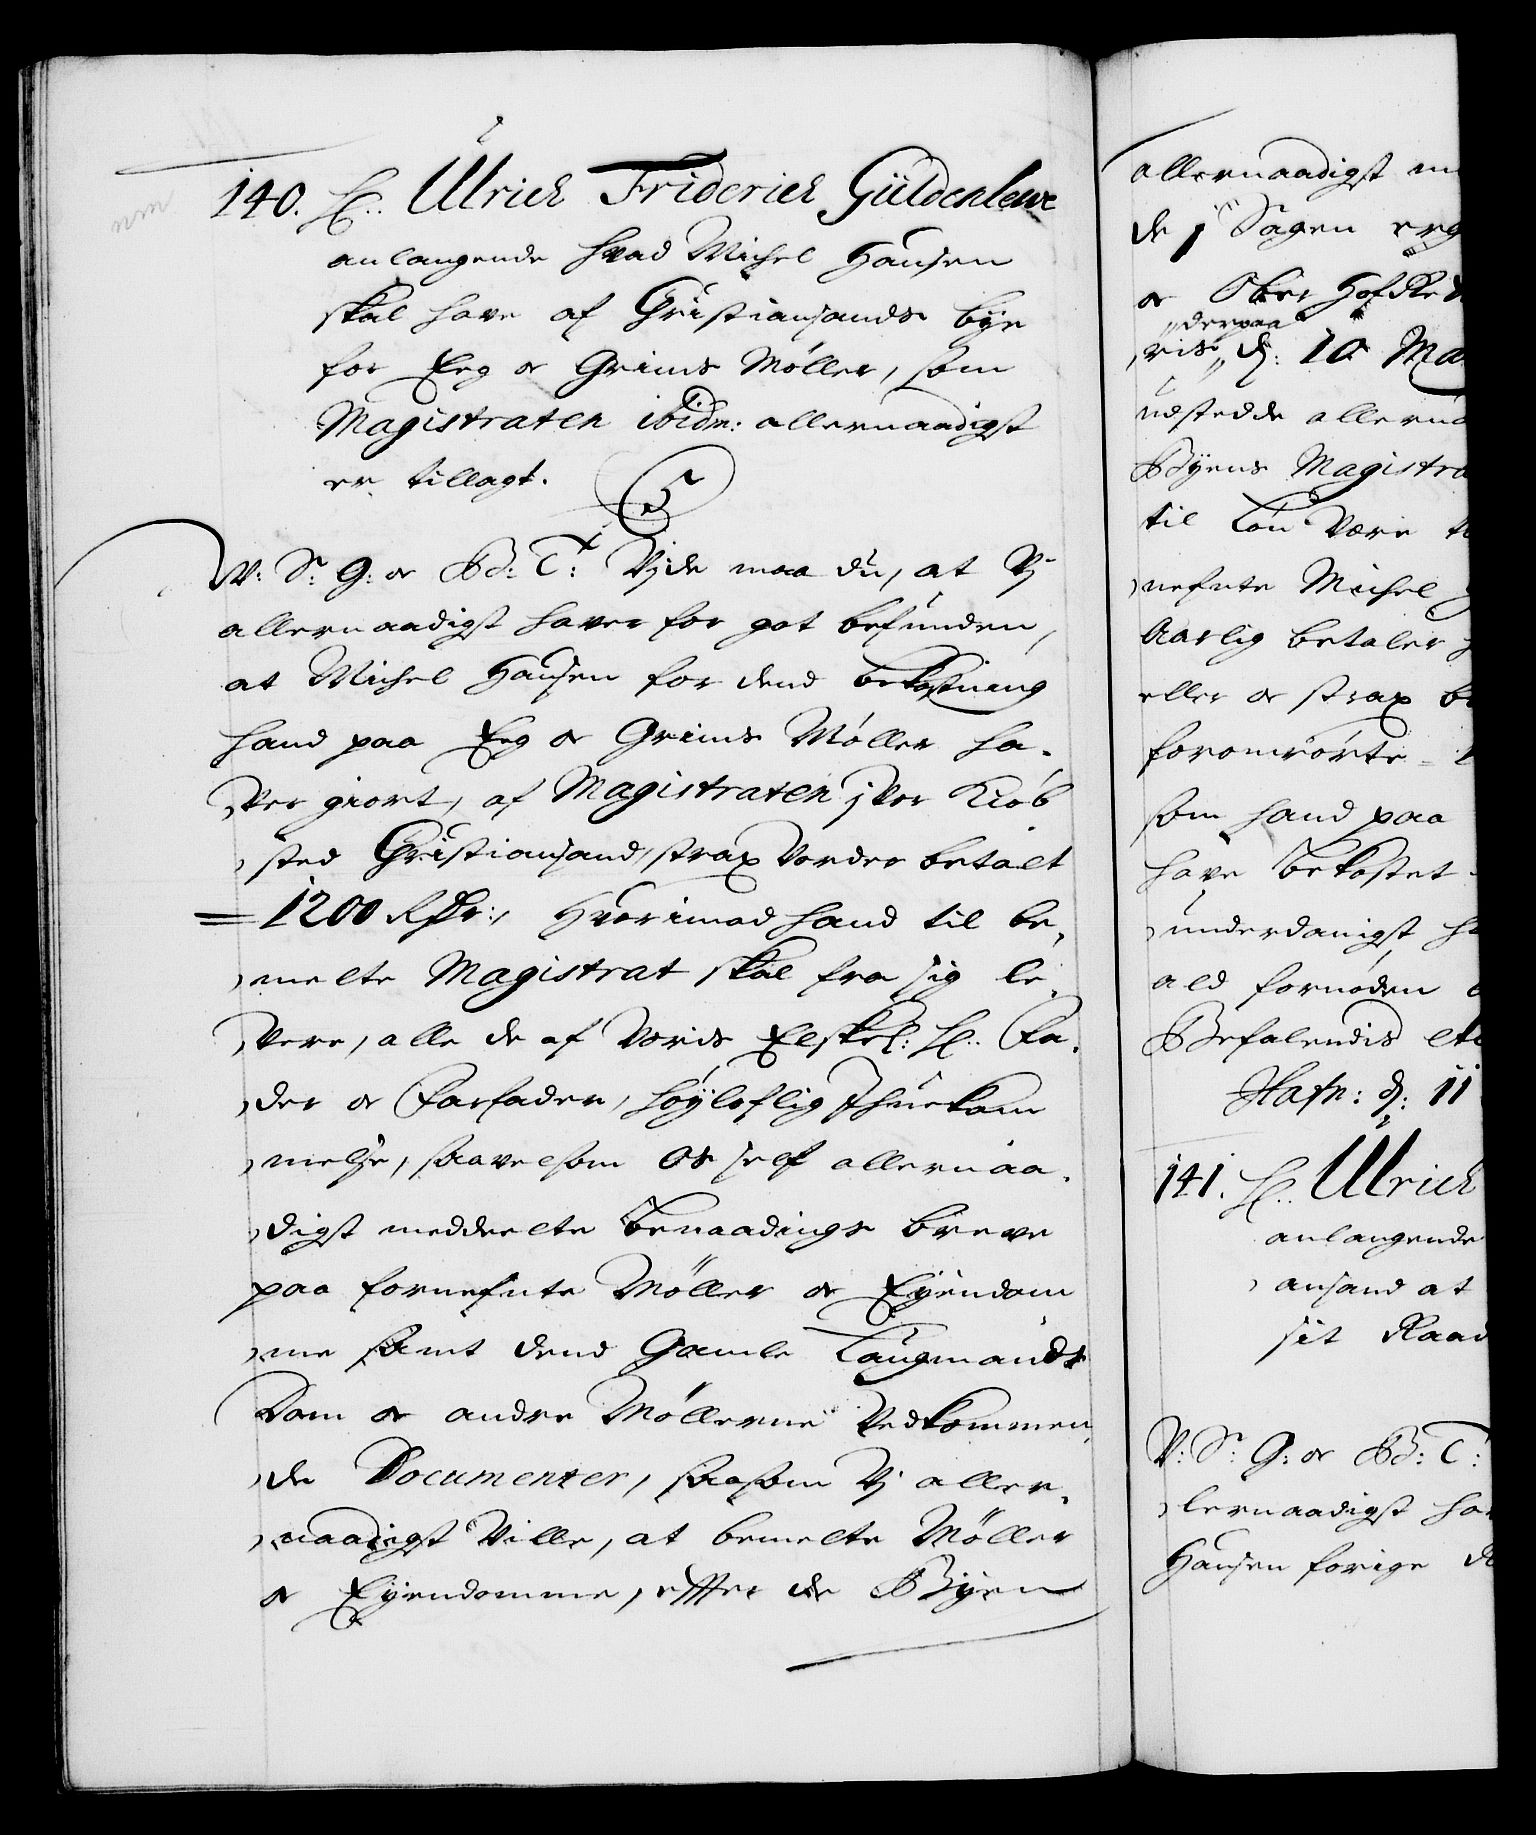 140. H. Ulrich Friderich Güldenlewe
anlangende hvad Michel Hansen
skal have af Christiansands bye
for Eeg oc Grims Møller, som
Magistraten ibidm: allernaadigst
er tillagt.
5
V: S: G: oc B: T: Vide maa du, at Vj
allernaadigst haver for got befunden,
at Michel Hansen for dend bekostning
hand paa Eeg oc Grims Møller ha-
ver giort, af Magistraten j Vor Kiøb
sted Christiansand, strax vorder betalt
= 1200 Rdr:, Hvorimod hand til be-
melte Magistrat skal fra sig le-
vere, alle de af Voris Elskel: H. Fa-
der oc Farfader, høyloflig Jhuekom
melse, saavelsom Os self allernaa-
digst meddeelte Benaadings breve
paa fornefnte Møller oc Eyendom
me samt dend Gamle Laugmands
Dom oc andre Møllerne Vedkommen
de Documenter, saasom Vj aller-
naadigst Ville, at bemelte Møller
oc Eyendomme, effter de Byen
allernaadigst
de j Sagen
oc Ober Hof
derpaa
d: 10 Ma
udstedde allerna
Byens Magistra
til Løn Være
nefnte Michel
Aarlig betaler
eller oc strax
foromrørte
som hand paa
have bekostet
underdanigst
ald fornøden
Befalendis
Hafn: d: 11
141. H. Ulrich
anlangende
ansand at
sit Raad
V: S: G: oc B: T:
lernaadigst ha
Hansen forige